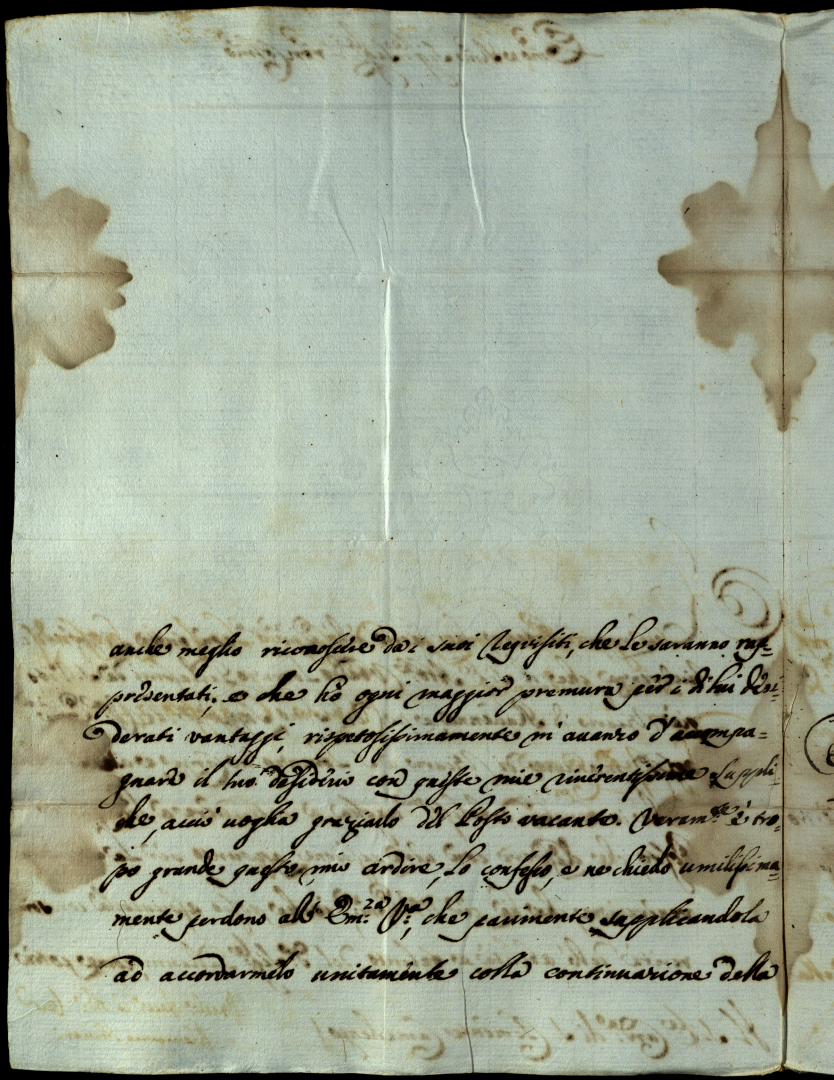 anche meglio riconoscere dai suoi requisiti, che le saranno rap-
presentati, e che hò ogni maggior premura per i di lui desi-
derati vantaggi, rispetosissimamente m'avanzo d'accompa-
gnare il suo desiderio con queste mie riverentissime suppli-
che, acciò voglia graziarlo del Posto vacante. Veram.te è tro-
po grande questo mio ardire, lo confesso, e ne chiedo umilissima-
mente perdono all' Em.za V.a, che parimente supplicandola
ad accordarmelo unitamente colla continuazione della